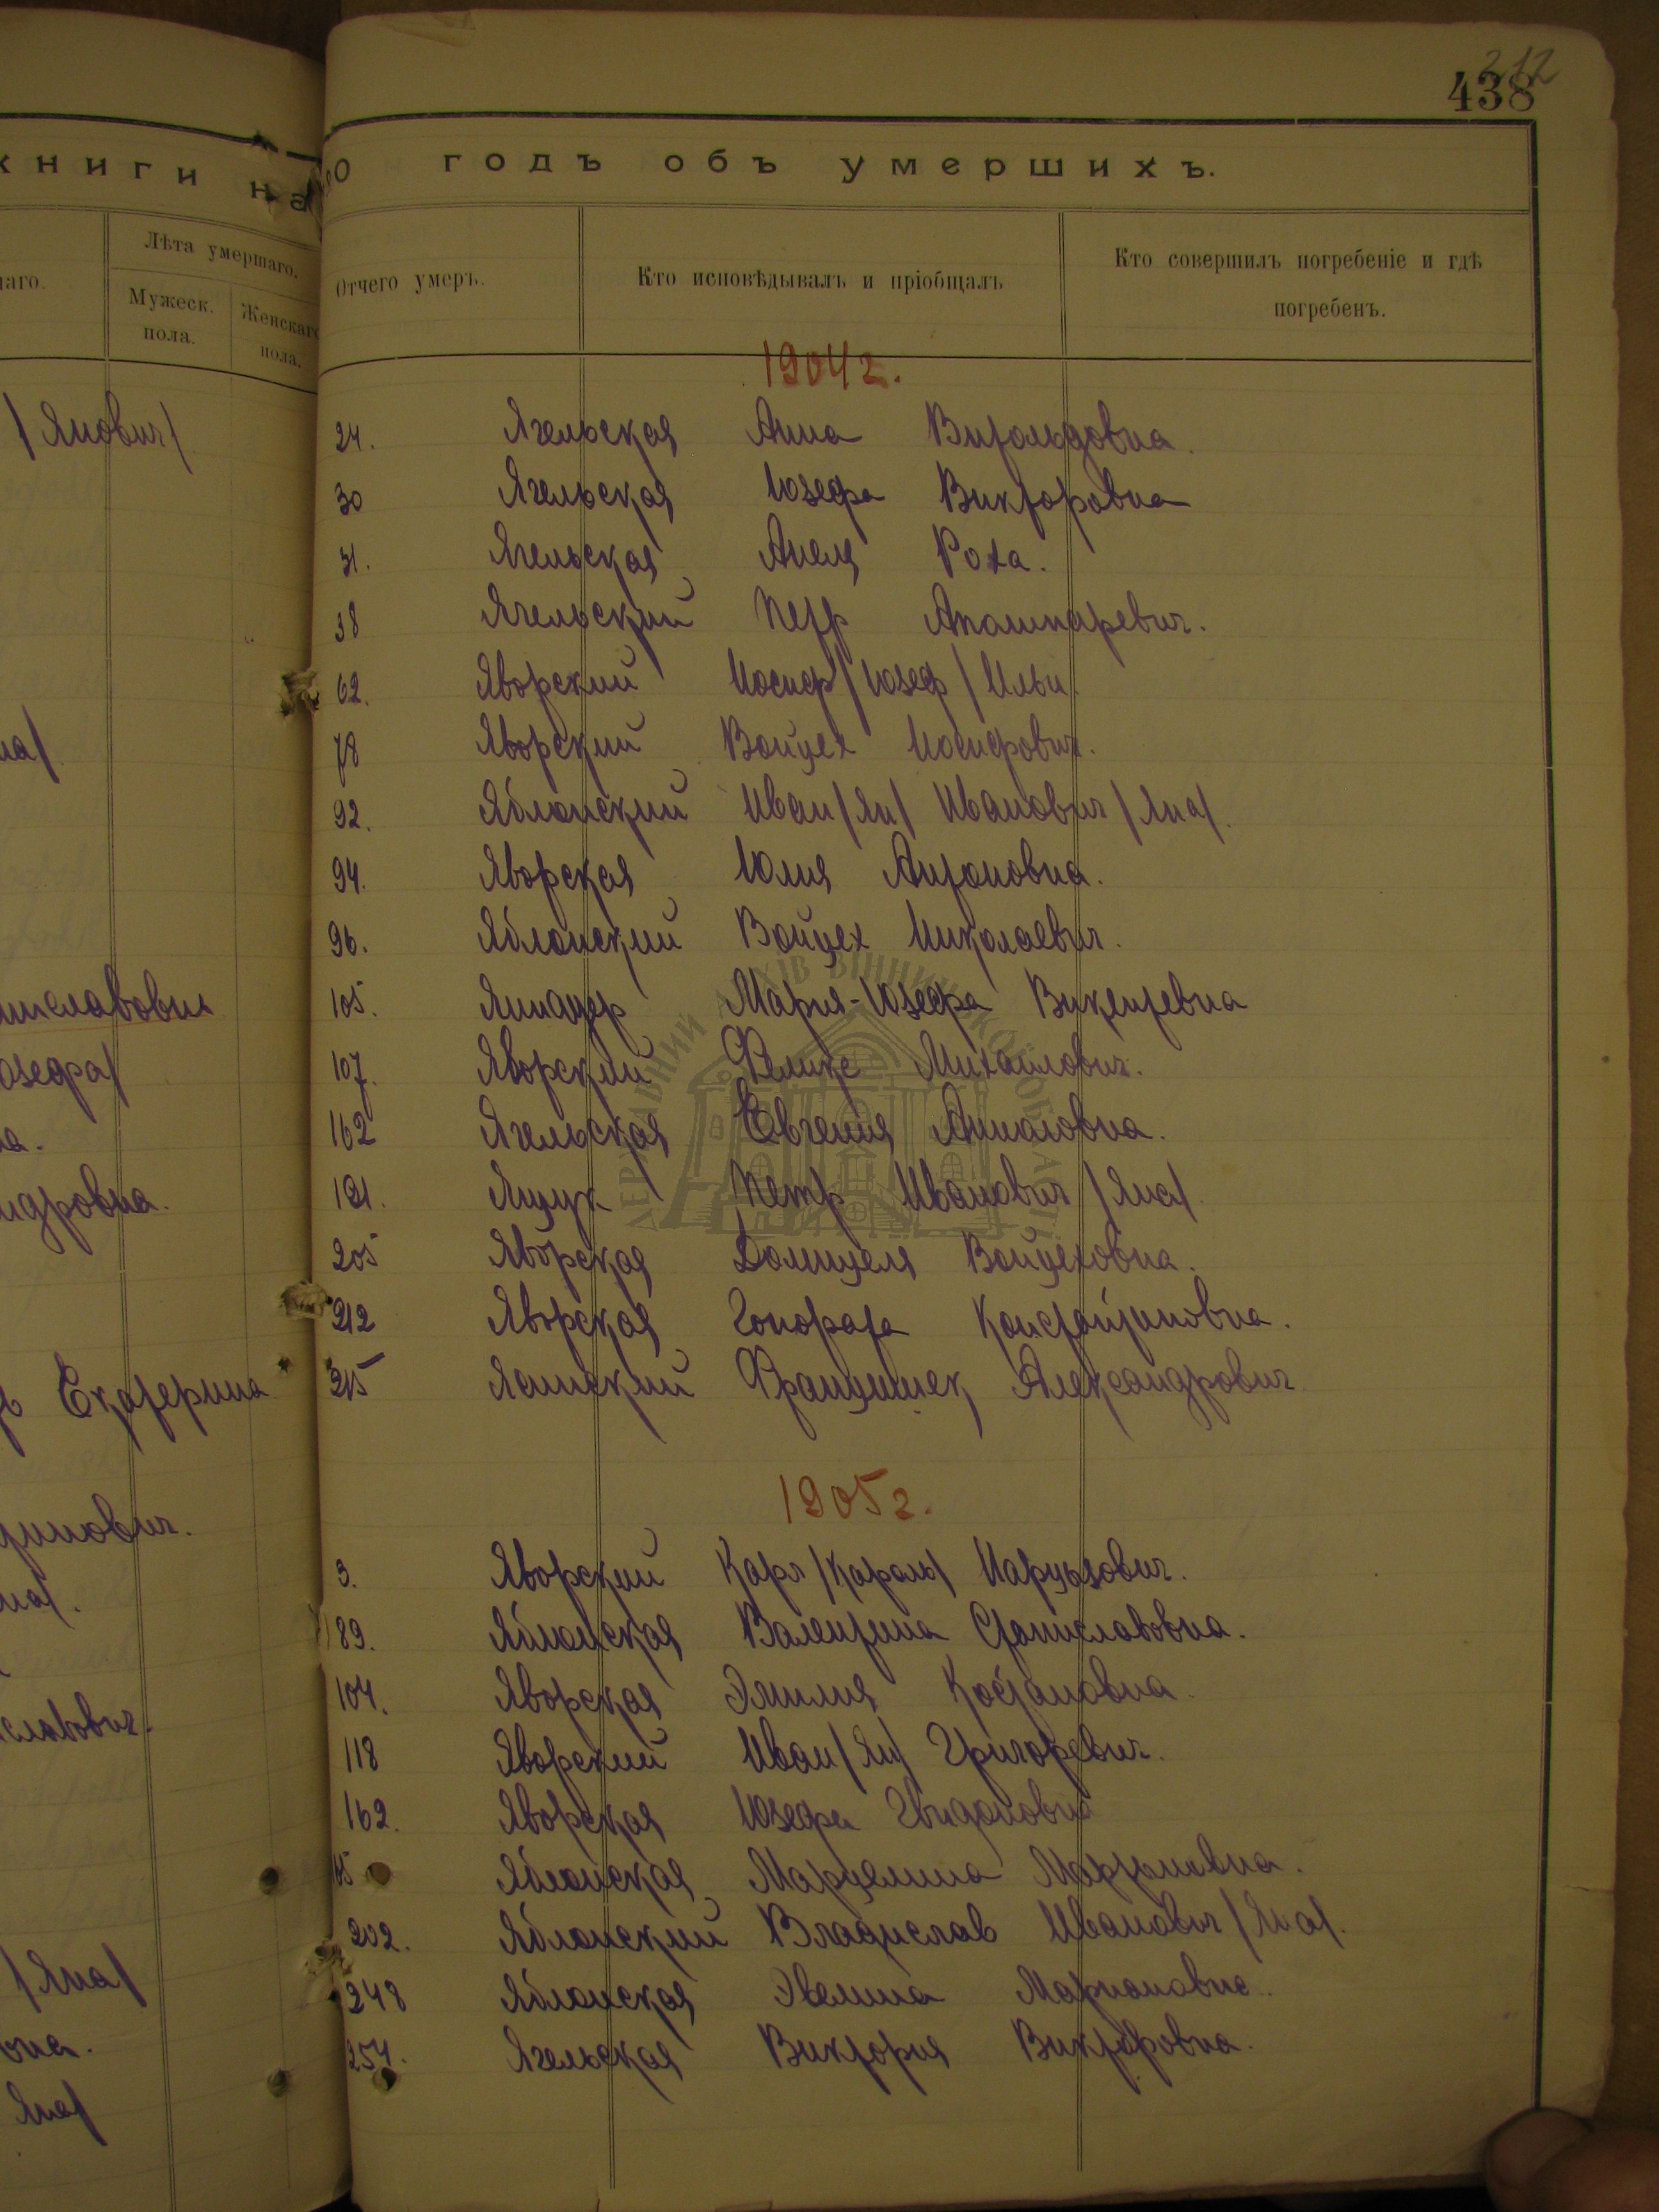 212
438
книги на
0 годъ объ умершихъ.
Лѣта умершаго.
Мужеск. пола.
Женскаго пола.
Отчего умеръ.
Кто исповѣдывалъ и пріобщалъ
Кто совершилъ погребеніе и гдѣ
погребенъ.
1904 г.
24. Ягельская Анна Витольдовна.
30 Ягельская Юзефа Викторовна
31. Ягельская Анеля Роха.
38 Ягельский Петр Апольнаревич.
62. Яворский Иосиф /Юзеф/ Ильи.
78 Яворский Войцех Иосифович.
92. Яблонский Иван /Ян/ Иванович /Яна/.
94. Яворская Юлия Антоновна.
96. Яблонский Войцех Николаевич.
105. Мария-Юзефа Викентевна
107. Яворский Феликс Михайлович.
162 Ягельская Евгения
181. Ящук Петр Иванович /Яна/.
205 Яворская Домицеля Войцеховна.
212 Яворская Гонората Константиновна.
215 Ясинский Францишек Александрович
1905 г.
3. Яворский Карл /Кароль/ Нарцызович.
89. Яблонская Валентина Станиславовна.
104. Яворская Эмилия Костановна.
118 Яворский Иван /Ян/ Григоревич.
162. Яворская Юзефа Гвидоновна
Яблонская Марцелина Мартиновна.
202. Яблонский Владислав Иванович /Яна/.
248 Яблонская Эвелина Мариановна.
254. Ягельская Виктория Викторовна.
/Янович/
на/
юзефа/
а.
ндровна.
Екатерина
тинович.
на/.
славович.
/Яна/
вна.
Яна/
ДЕРЖАВНИЙ АРХІВ ВІННИЦЬКОЇ ОБЛАСТІ